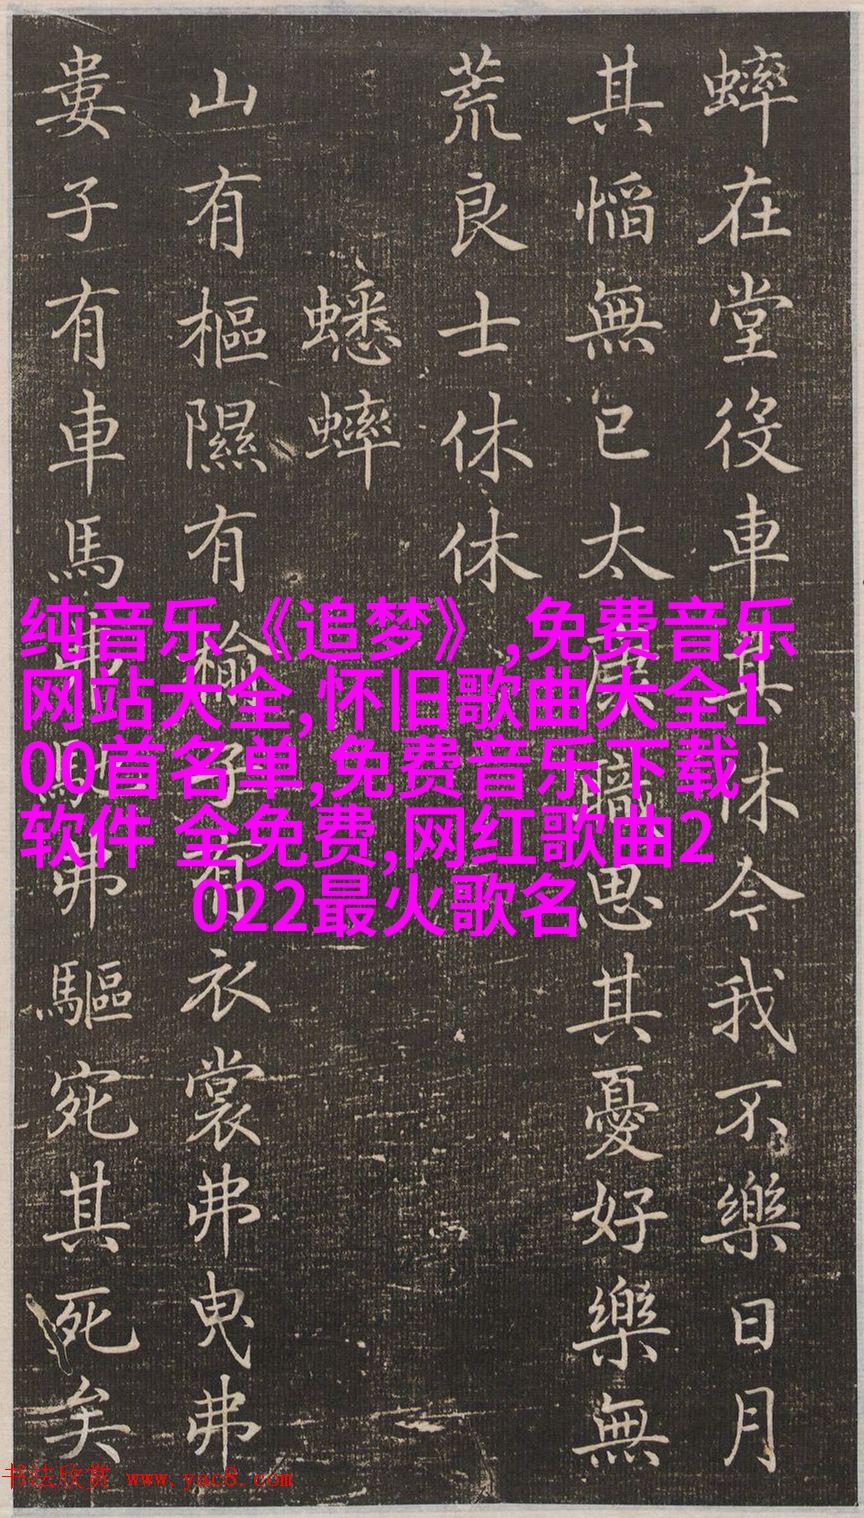 蟀在堂役車其休今我不樂日月
其慆無已太康職思其憂好樂無
荒良士休休
蟋蟀
山有樞隰有榆子有衣裳弗曳弗
婁子有車馬弗馳弗驅宛其死矣
纯音乐《追梦》,免费音乐
网站大全,怀旧歌曲大全1
00首名单,免费音乐下载
软件 全免费,网红歌曲2
022最火歌名
书法欣赏 www.yac8.com